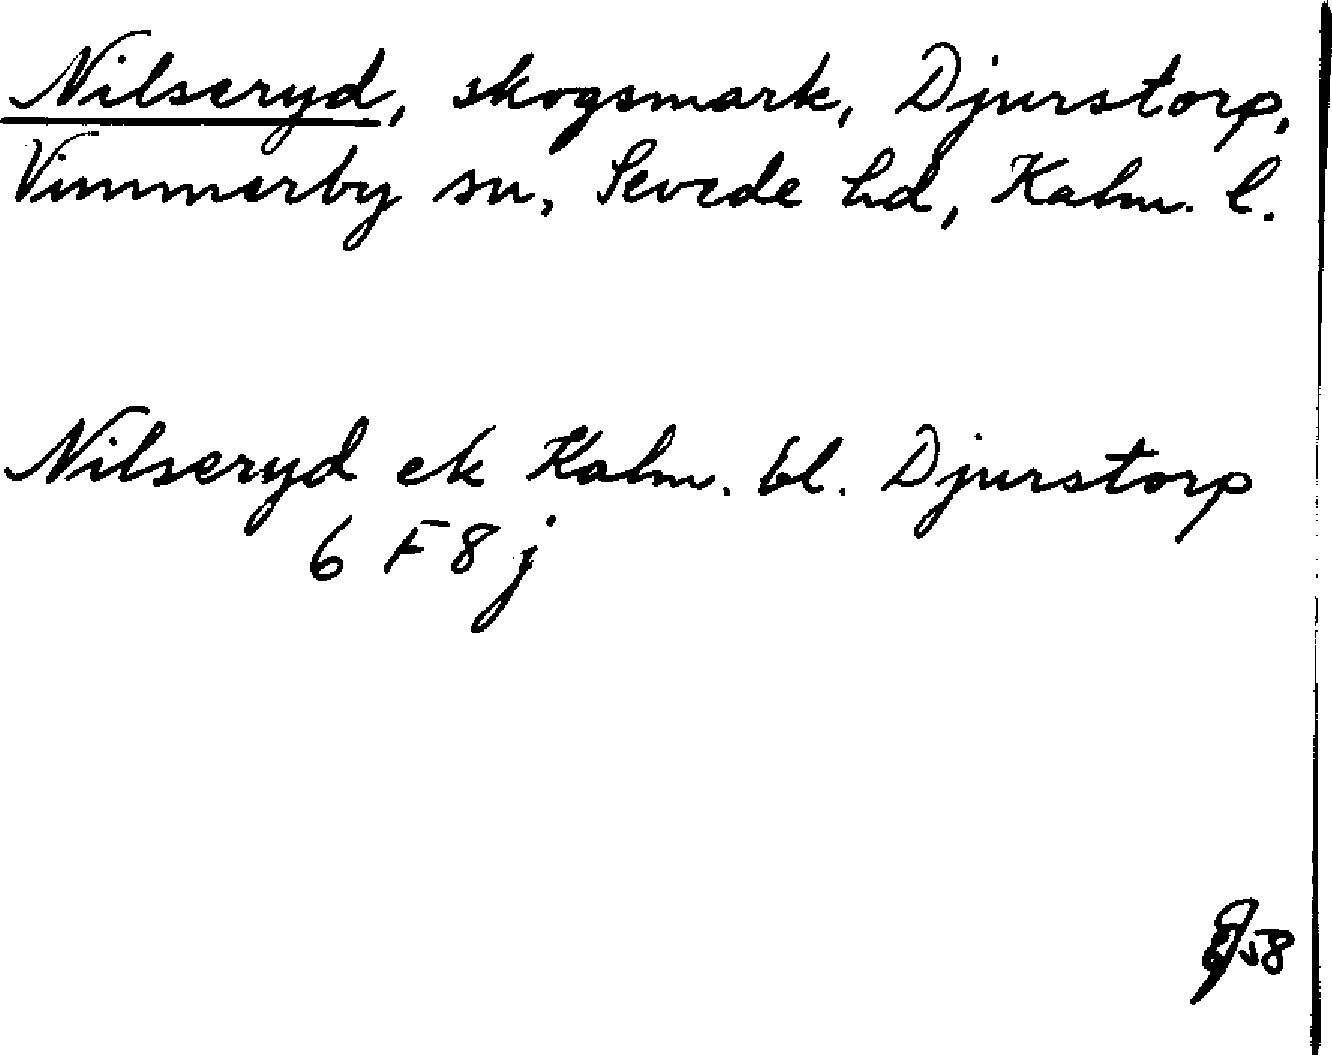 Nilseryd, skogsmark, Djurstorp,
Vimmerby sn, Sevede hd, Kalm. l.
Nilseryd ek Kalm. bl. Djurstorp
6 F 8 j
58